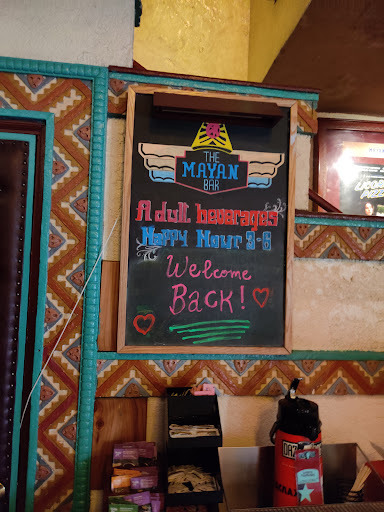 THE
MAYAN
BAR
Adult beverages
Happy Hour 3-6
Welcome
BACK!